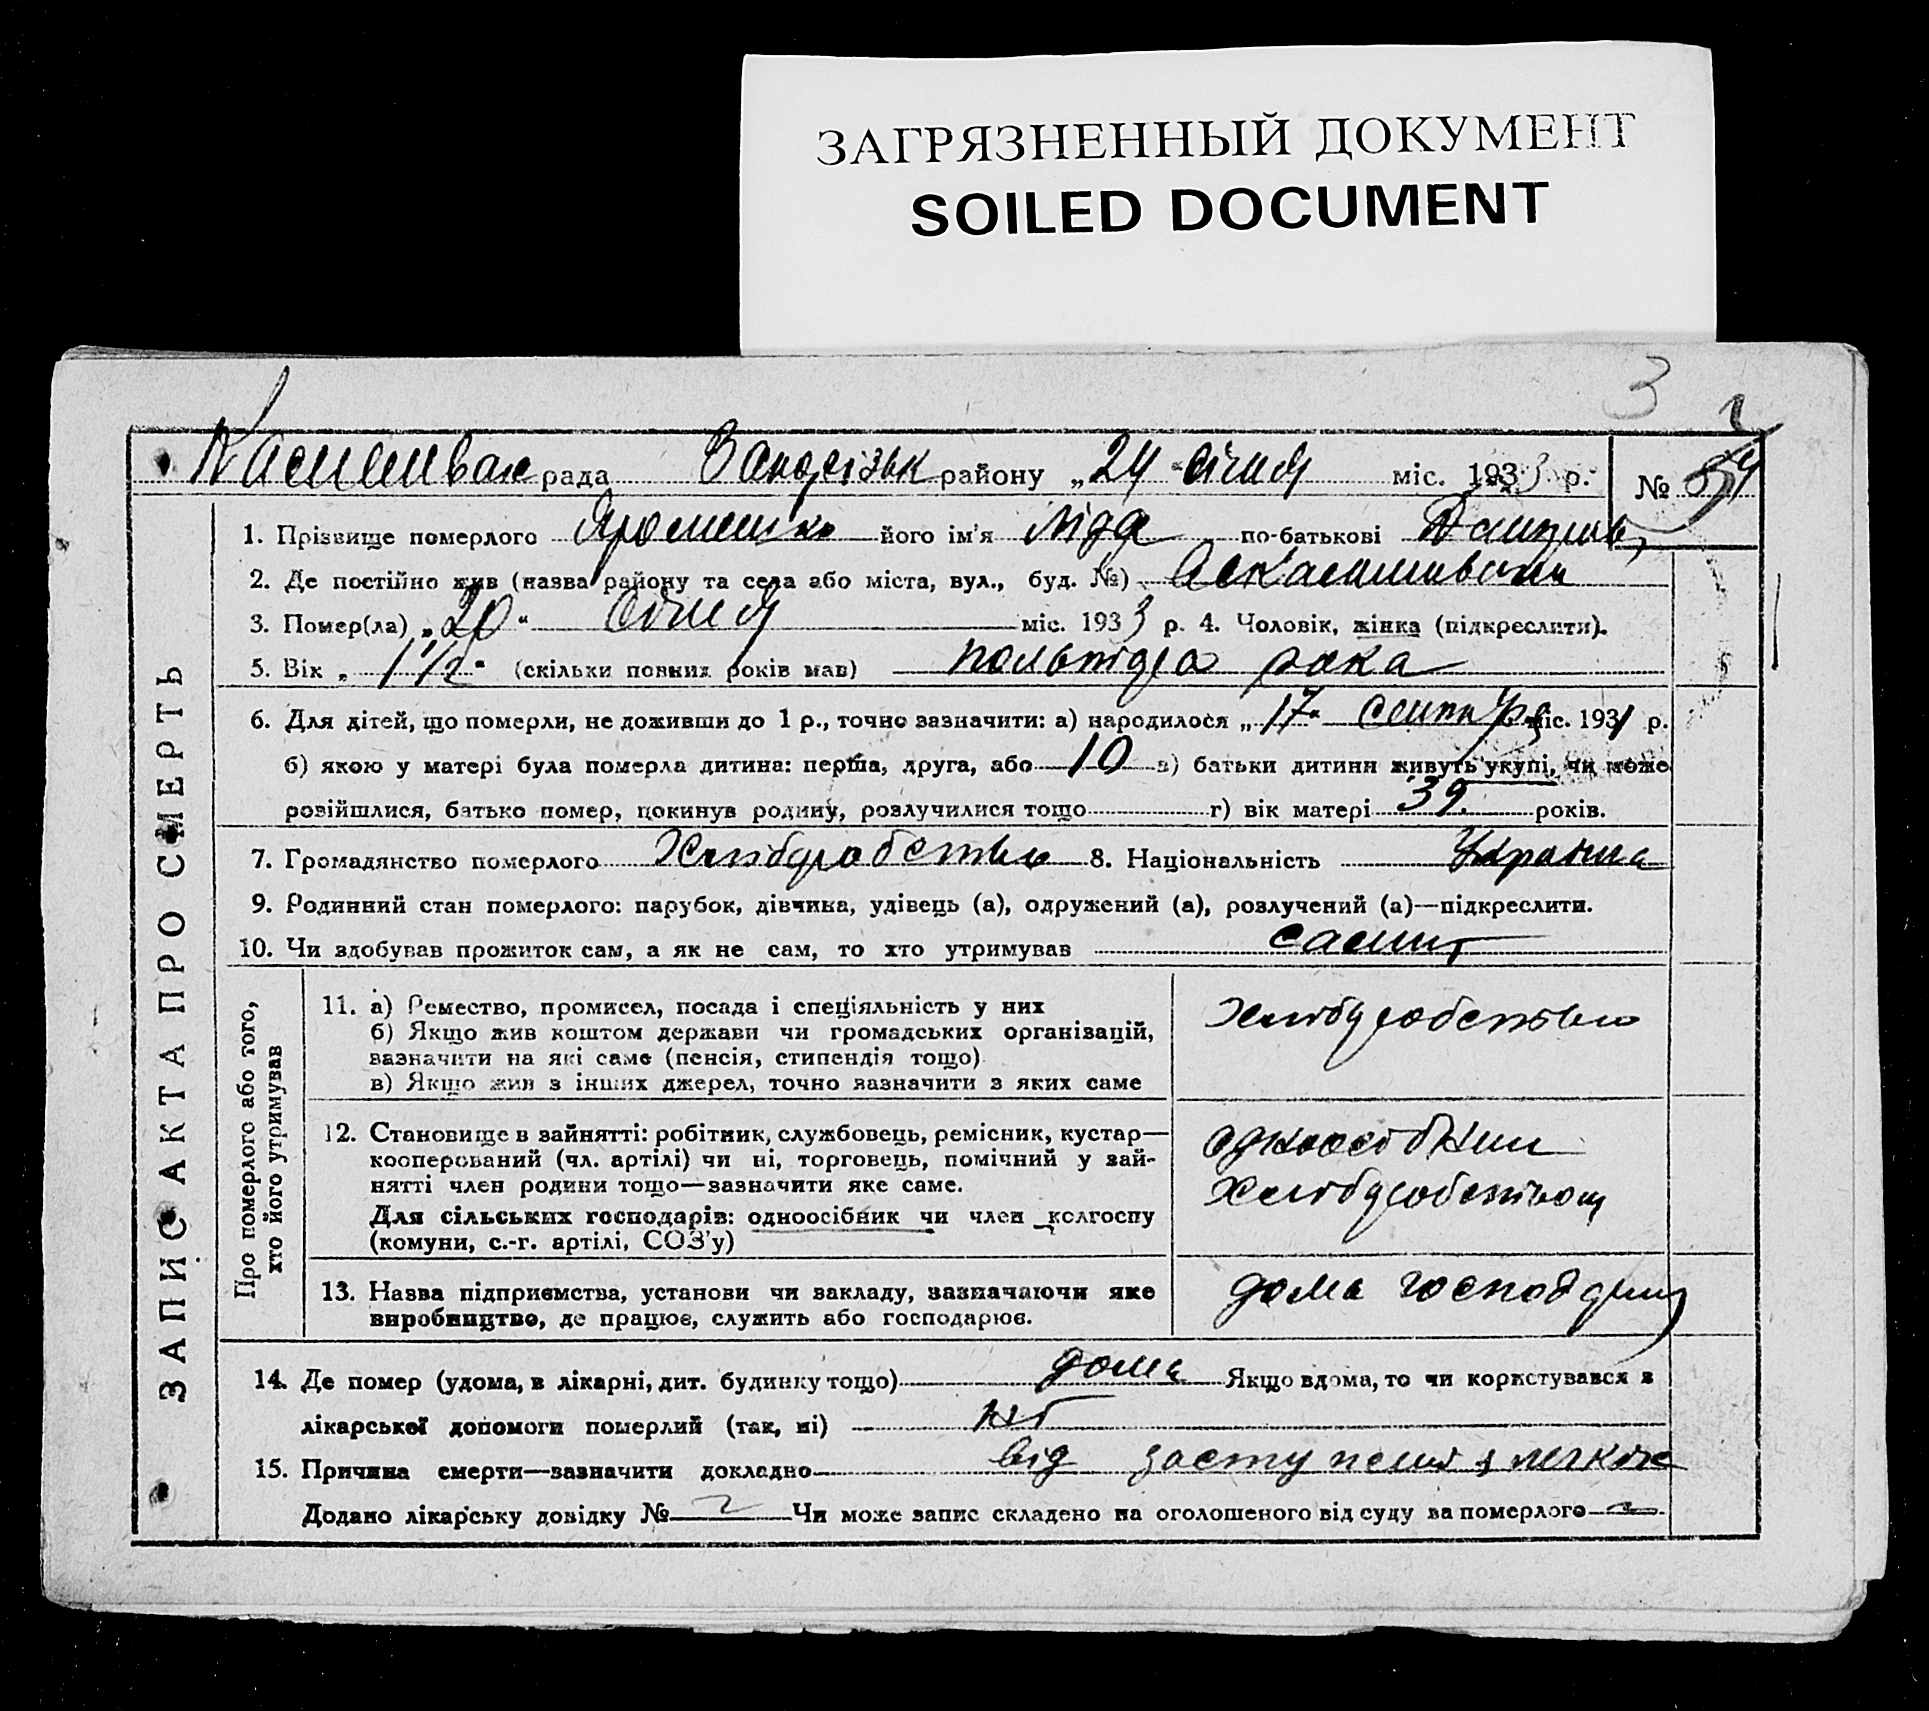 ЗАГРЯЗНЕННЫЙ ДОКУМЕНТ
SOILED DOCUMENT
3
рада району „24" січня міс. 1933 р. №
1. Прізвище померлого його ім'я Ліда по-батькові
2. Де постійно жив (назва району та села або міста, вул., буд. №)
3. Помер(ла) „20" січня міс. 1933 р. 4. Чоловік, жінка (підкреслити).
5. Вік „1 1/2" (скільки повних років мав) польтора рока
6. Для дітей, що померли, не доживши до 1 р., точно зазначити: а) народилося „17" міс. 1931 р.
б) якою у матері була померла дитина: перша, друга, або 10 в) батьки дитини живуть укупі, чи може
розійшлися, батько помер, покинув родину, розлучилися тощо г) вік матері 39 років.
7. Громадянство померлого 8. Національність
9. Родинний стан померлого: парубок, дівчина, удівець (а), одружений (а), розлучений (а)—підкреслити.
10. Чи здобував прожиток сам, а як не сам, то хто утримував
ЗАПИС АКТА ПРО СМЕРТЬ
Про померлого або того, хто його утримував
11. а) Ремество, промисел, посада і спеціяльність у них
б) Якщо жив коштом держави чи громадських організацій,
зазначити на які саме (пенсія, стипендія тощо)
в) Якщо жив з інших джерел, точно зазначити з яких саме
12. Становище в зайнятті: робітник, службовець, ремісник, кустар—
кооперований (чл. артілі) чи ні, торговець, помічний у зай-
нятті член родини тощо—зазначити яке саме.
Для сільських господарів: одноосібник чи член колгоспу
(комуни, с.-г. артілі, СОЗ'у)
13. Назва підприємства, установи чи закладу, зазначаючи яке дома
виробництво, де працює, служить або господарює.
14. Де помер (удома, в лікарні, дит. будинку тощо) дома Якщо вдома, то чи користувався з
лікарської допомоги померлий (так, ні) ні
15. Причина смерти—зазначити докладно від
Додано лікарську довідку № Чи може запис складено на оголошеного від суду за померлого